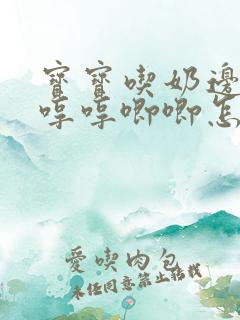 寶寶喫奶邊
哼哼唧唧怎
愛喫肉包
未經同意禁止轉載